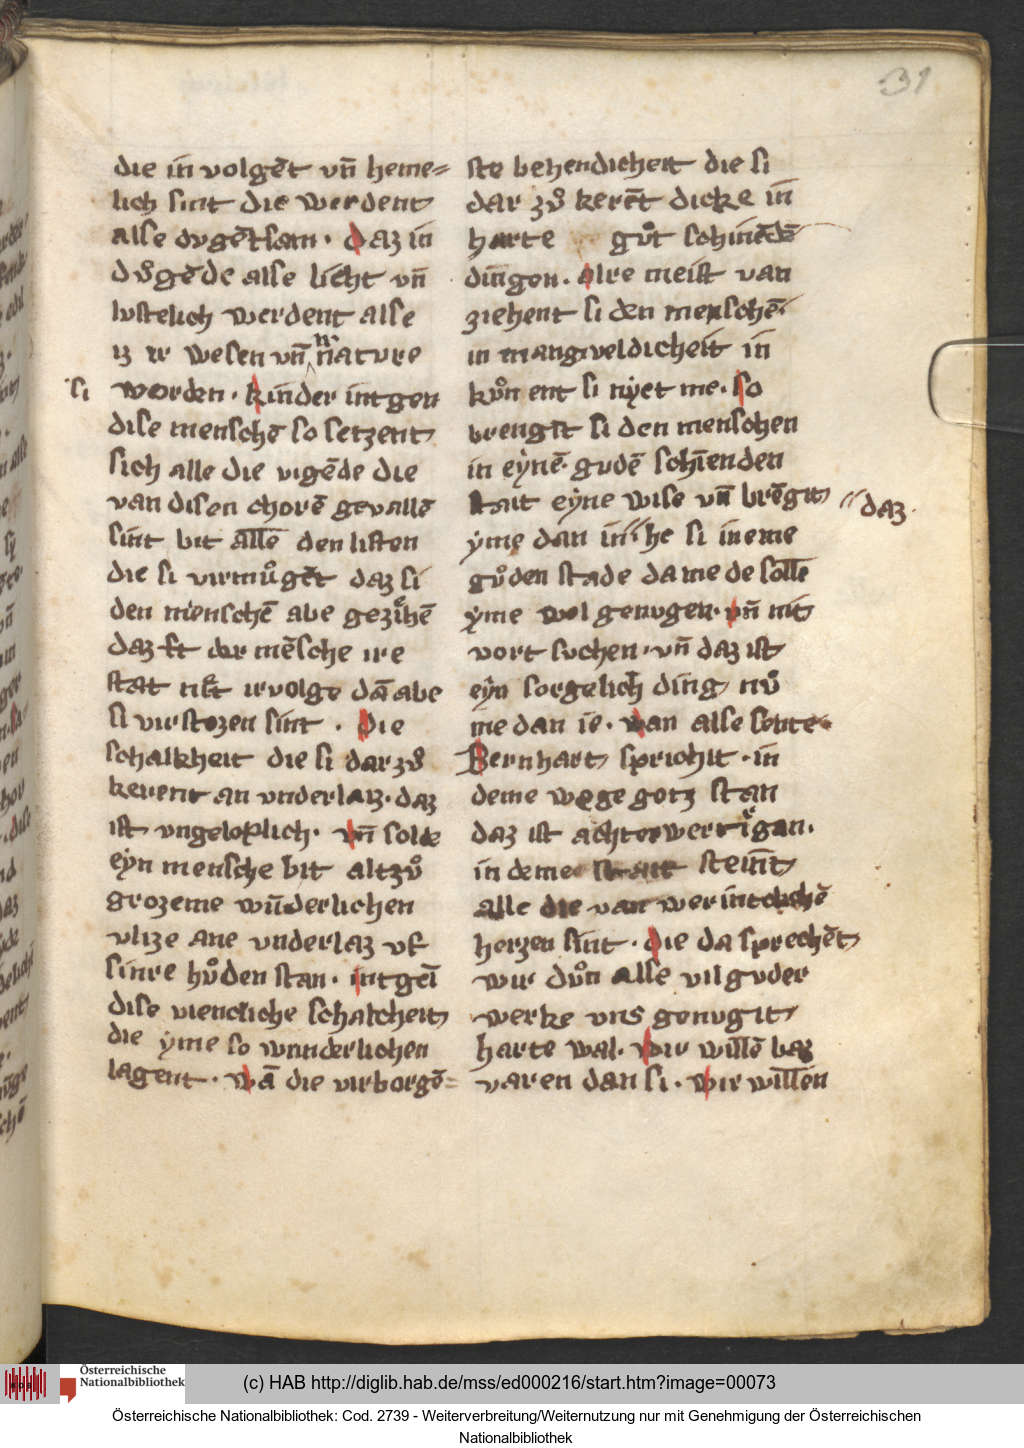 31
die in volgēt vn̄ heme=
lich sint die werdent
alse dvgētsam · daz in
dvͦgēde alse licht vn̄
lvstelich werdent alse
iz ir wesen vn̄ ir nature
si worden · kinder intgen
dise menschē so setzent
sich alle die vigēde die
van disen chorē gevallē
sint bit allē den listen
die si virmuͦgēt daz si
den menschē abe geziehē
daz si der mēsche ire
stat nit irvolge dā abe
si virstozen sint · die
schalkheit die si dar zvͦ
kerent an vnderlaz · daz
ist vngeloplich · vn̄ solde
eyn mensche bit altzvͦ
grozeme wūderlichen
vlize ane vnderlaz vf
sinre hvͦden stan · intgeī
dise vientliche schalcheit
die yme so wnnderlichen
lagent · wā die virborgē=
ste behendicheit die si
dar zvͦ kerēt dicke in
harte gvͦt schinēdē
dingen · alre meist van
ziehent si den menschē
in mangveldicheit in
kvͦnent si nyet me · so
brengit si den menschen
in eynē gvdē schīenden
stait eyne wise vn̄ brēgit
daz
yme dan in he si in eme
gvͦden stade dameде sollē
yme wol genvgen · vn̄ nit
vort svchen · vn̄ daz ist
eyn sorgelich ding nvͦ
me dan ie · wan alse sente
Bernhart sprichit · in
deme wege gotz stan
daz ist achterwert gan ·
in deme steint
alle die van
herzen sint · die da sprechēt
wir dvͦn alse vil gvder
werke vns genvgit
harte wal · wir willē baz
varen dan si · wir willen
(c) HAB http://diglib.hab.de/mss/ed000216/start.htm?image=00073
Österreichische
Nationalbibliothek
Österreichische Nationalbibliothek: Cod. 2739 - Weiterverbreitung/Weiternutzung nur mit Genehmigung der Österreichischen
Nationalbibliothek